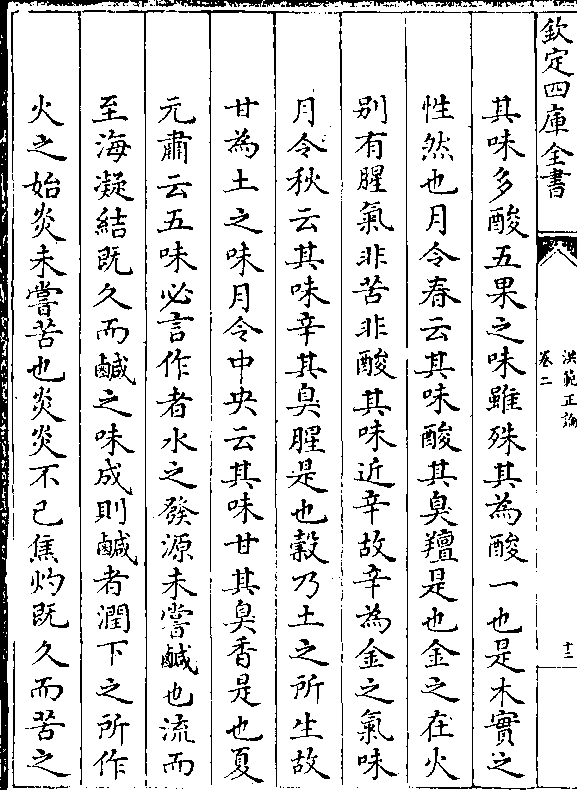 欽定四庫全書
洪範正論
卷二
十二
其味多酸五果之味雖殊其為酸一也是木實之
性然也月令春云其味酸其臭羶是也金之在火
别有腥氣非苦非酸其味近辛故辛為金之氣味
月令秋云其味辛其臭腥是也榖乃土之所生故
甘為土之味月令中央云其味甘其臭香是也夏
元肅云五味必言作者水之發源未嘗鹹也流而
至海凝結既久而鹹之味成則鹹者潤下之所作
火之始炎未嘗苦也炎炎不已焦灼既久而苦之